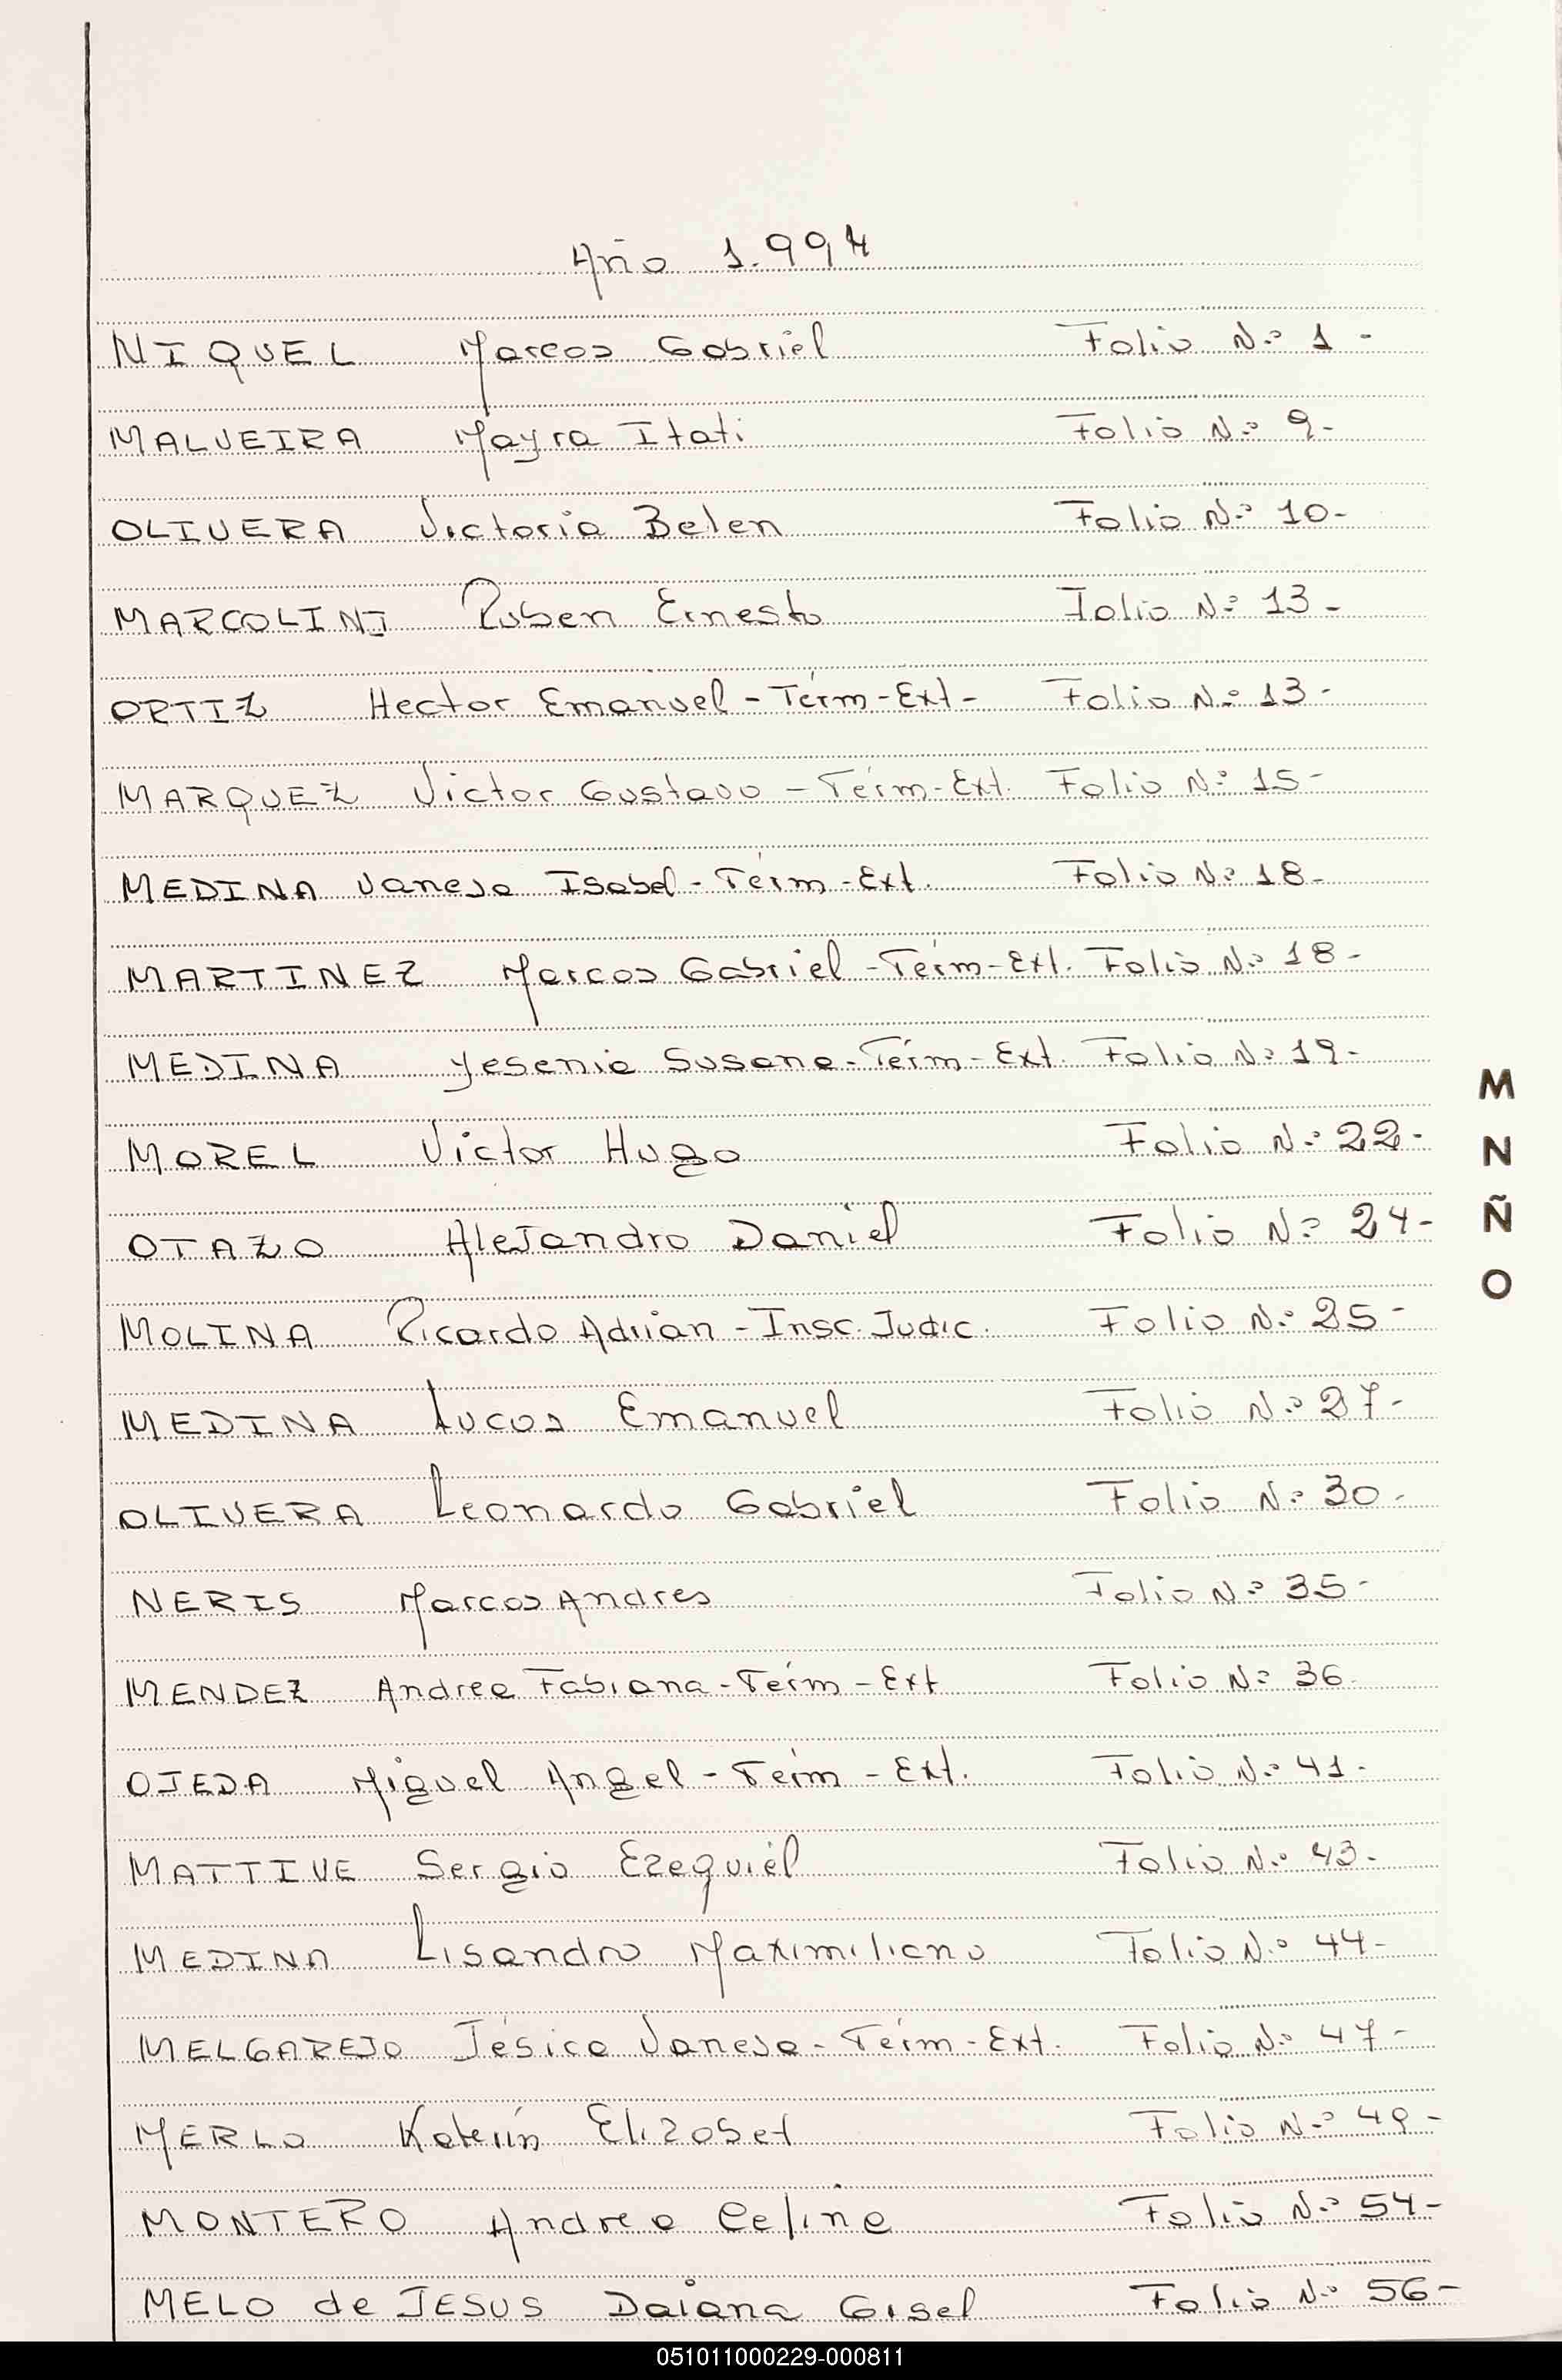 Año 1.994
NIQUEL Marcos Gabriel Folio N.º 1 -
MALVEIRA Mayra Itati Folio N.º 9-
OLIVERA Victoria Belen Folio N.º 10-
MARCOLINI Ruben Ernesto Folio N.º 13-
ORTIZ Hector Emanuel - Térm - Ext - Folio N.º 13-
MARQUEZ Victor Gustavo - Térm - Ext. Folio N.º 15-
MEDINA Vanesa Isabel - Térm - Ext. Folio N.º 18-
MARTINEZ Marcos Gabriel - Térm - Ext. Folio N.º 18-
MEDINA Yesenia Susana - Térm - Ext. Folio N.º 19-
MOREL Victor Hugo Folio N.º 22-
OTAZO Alejandro Daniel Folio N.º 24-
MOLINA Ricardo Adrián - Insc. Judic. Folio N.º 25-
MEDINA Lucas Emanuel Folio N.º 27-
OLIVERA Leonardo Gabriel Folio N.º 30-
NERIS Marcos Andres Folio N.º 35-
MENDEZ Andrea Fabiana - Térm - Ext Folio N.º 36-
OJEDA Miguel Angel - Térm - Ext. Folio N.º 41-
MATTIVE Sergio Ezequiel Folio N.º 43-
MEDINA Lisandro Maximiliano Folio N.º 44-
MELGAREJO Jésica Vanesa - Térm - Ext. Folio N.º 47-
MERLO Katerín Elizabet Folio N.º 49-
MONTERO Andrea Celina Folio N.º 54-
MELO de JESUS Daiana Gisel Folio N.º 56-
M
N
Ñ
O
051011000229-000811